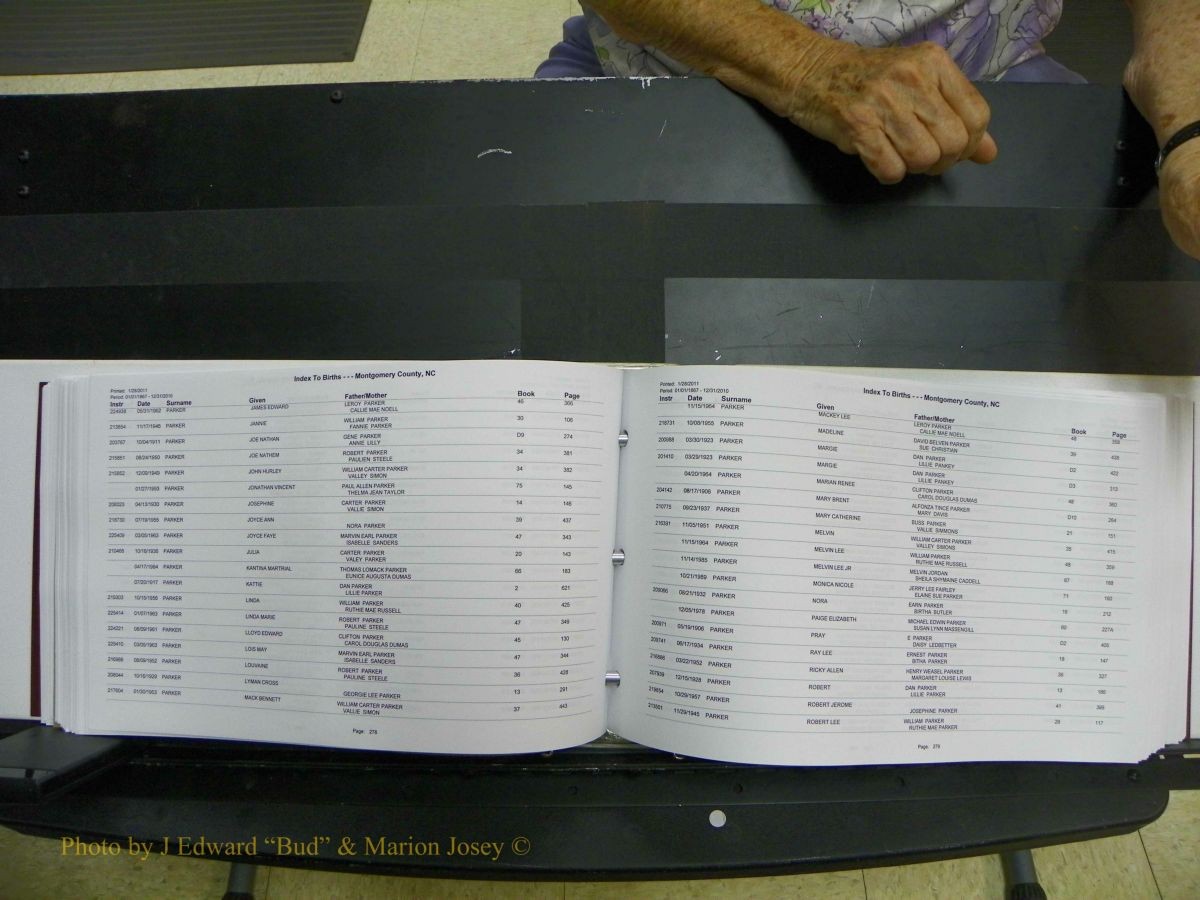 Index To Births - - - Montgomery County, NC
Printed: 1/28/2011
Period: 01/01/1867 - 12/31/2010
Instr Date Surname Given Father/Mother Book Page
224938 05/31/1962 PARKER JAMES EDWARD LEROY PARKER 46 366
CALLIE MAE NOELL
213854 11/17/1946 PARKER JANNIE WILLIAM PARKER 30 106
FANNIE PARKER
203767 10/04/1911 PARKER JOE NATHAN GENE PARKER D9 274
ANNIE LILLY
215851 08/24/1950 PARKER JOE NATHEM ROBERT PARKER 34 381
PAULIEN STEELE
215852 12/09/1949 PARKER JOHN HURLEY WILLIAM CARTER PARKER 34 382
VALLEY SIMON
01/27/1993 PARKER JONATHAN VINCENT PAUL ALLEN PARKER 75 145
THELMA JEAN TAYLOR
04/13/1930 PARKER JOSEPHINE CARTER PARKER 14 146
VALLIE SIMON
218730 07/19/1955 PARKER JOYCE ANN 39 437
NORA PARKER
225409 03/05/1963 PARKER JOYCE FAYE MARVIN EARL PARKER 47 343
ISABELLE SANDERS
210468 10/16/1936 PARKER JULIA CARTER PARKER 20 143
VALEY PARKER
04/17/1984 PARKER KANTINA MARTRIAL THOMAS LOMACK PARKER 66 183
EUNICE AUGUSTA DUMAS
07/20/1917 PARKER KATTIE DAN PARKER 2 621
LILLIE PARKER
10/15/1956 PARKER LINDA WILLIAM PARKER 40 425
RUTHIE MAE RUSSELL
225414 01/07/1963 PARKER LINDA MARIE ROBERT PARKER 47 349
PAULINE STEELE
224221 08/09/1961 PARKER LLOYD EDWARD CLIFTON PARKER 45 130
CAROL DOUGLAS DUMAS
225410 03/05/1963 PARKER LOIS MAY MARVIN EARL PARKER 47 344
ISABELLE SANDERS
08/09/1952 PARKER LOUVAINE ROBERT PARKER 36 428
PAULINE STEELE
208044 10/16/1929 PARKER LYMAN CROSS 13 291
GEORGIE LEE PARKER
217604 01/30/1953 PARKER MACK BENNETT WILLIAM CARTER PARKER 37 443
VALLIE SIMON
Page: 278
Index To Births - - - Montgomery County, NC
Printed: 1/28/2011
Period: 01/01/1867 - 12/31/2010
Instr Date Surname Given Father/Mother Book Page
11/15/1964 PARKER MACKEY LEE LEROY PARKER 48 358
CALLIE MAE NOELL
218731 10/08/1955 PARKER MADELINE DAVID BELVEN PARKER 39 438
SUE CHRISTIAN
200988 03/30/1923 PARKER MARGIE DAN PARKER D2 422
LILLIE PANKEY
201410 03/29/1923 PARKER MARGIE DAN PARKER D3 313
LILLIE PANKEY
04/20/1964 PARKER MARIAN RENEE CLIFTON PARKER 48 360
CAROL DOUGLAS DUMAS
204142 08/17/1906 PARKER MARY BRENT ALFONZA TINCE PARKER D10 264
MARY DAVIS
210775 09/23/1937 PARKER MARY CATHERINE BUSS PARKER 21 151
VALLIE SIMMONS
216391 11/05/1951 PARKER MELVIN WILLIAM CARTER PARKER 35 415
VALLEY SIMONS
11/15/1964 PARKER MELVIN LEE WILLIAM PARKER 48 359
RUTHIE MAE RUSSELL
11/14/1985 PARKER MELVIN LEE JR MELVIN JORDAN 67 188
SHEILA SHYMAINE CADDELL
10/21/1989 PARKER MONICA NICOLE JERRY LEE FAIRLEY 71 160
ELAINE SUE PARKER
08/21/1932 PARKER NORA EARN PARKER 16 212
BIRTHA BUTLER
12/05/1978 PARKER PAIGE ELIZABETH MICHAEL EDWIN PARKER 60 227A
SUSAN LYNN MASSENGILL
200971 05/19/1906 PARKER PRAY E PARKER D2 405
DAISY LEDBETTER
06/17/1934 PARKER RAY LEE ERNEST PARKER 18 147
BITHA PARKER
03/22/1952 PARKER RICKY ALLEN HENRY WEASEL PARKER 36 327
MARGARET LOUISE LEWIS
207939 12/15/1928 PARKER ROBERT DAN PARKER 13 186
LILLIE PARKER
219654 10/29/1957 PARKER ROBERT JEROME 41 399
JOSEPHINE PARKER
213501 11/29/1945 PARKER ROBERT LEE WILLIAM PARKER 29 117
RUTHIE MAE PARKER
Page: 279
Photo by J Edward “Bud” & Marion Josey ©